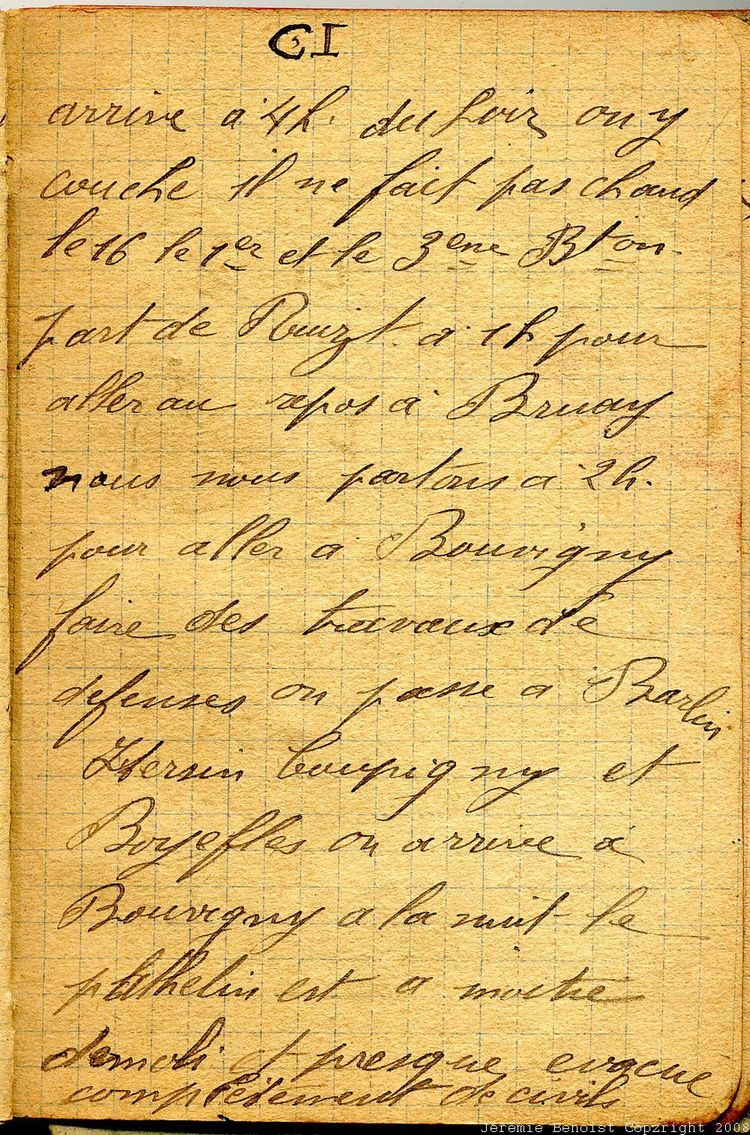 CI
arrive a 4h. du soir on y
couche il ne fait pas chaud
le 16 le 1er et le 3eme Bton
part de Ruizt a 1h pour
aller au repos a Bruay
nous nous partons a 2h.
pour aller a Bouvigny
faire des travaux de
defenses on passe a Barlin
Hersin Coupigny et
Boyefles on arrive a
Bouvigny a la nuit le
est a moitie
demoli et presque evacué
completement de civils
Jeremie Benoist Copyright 2008